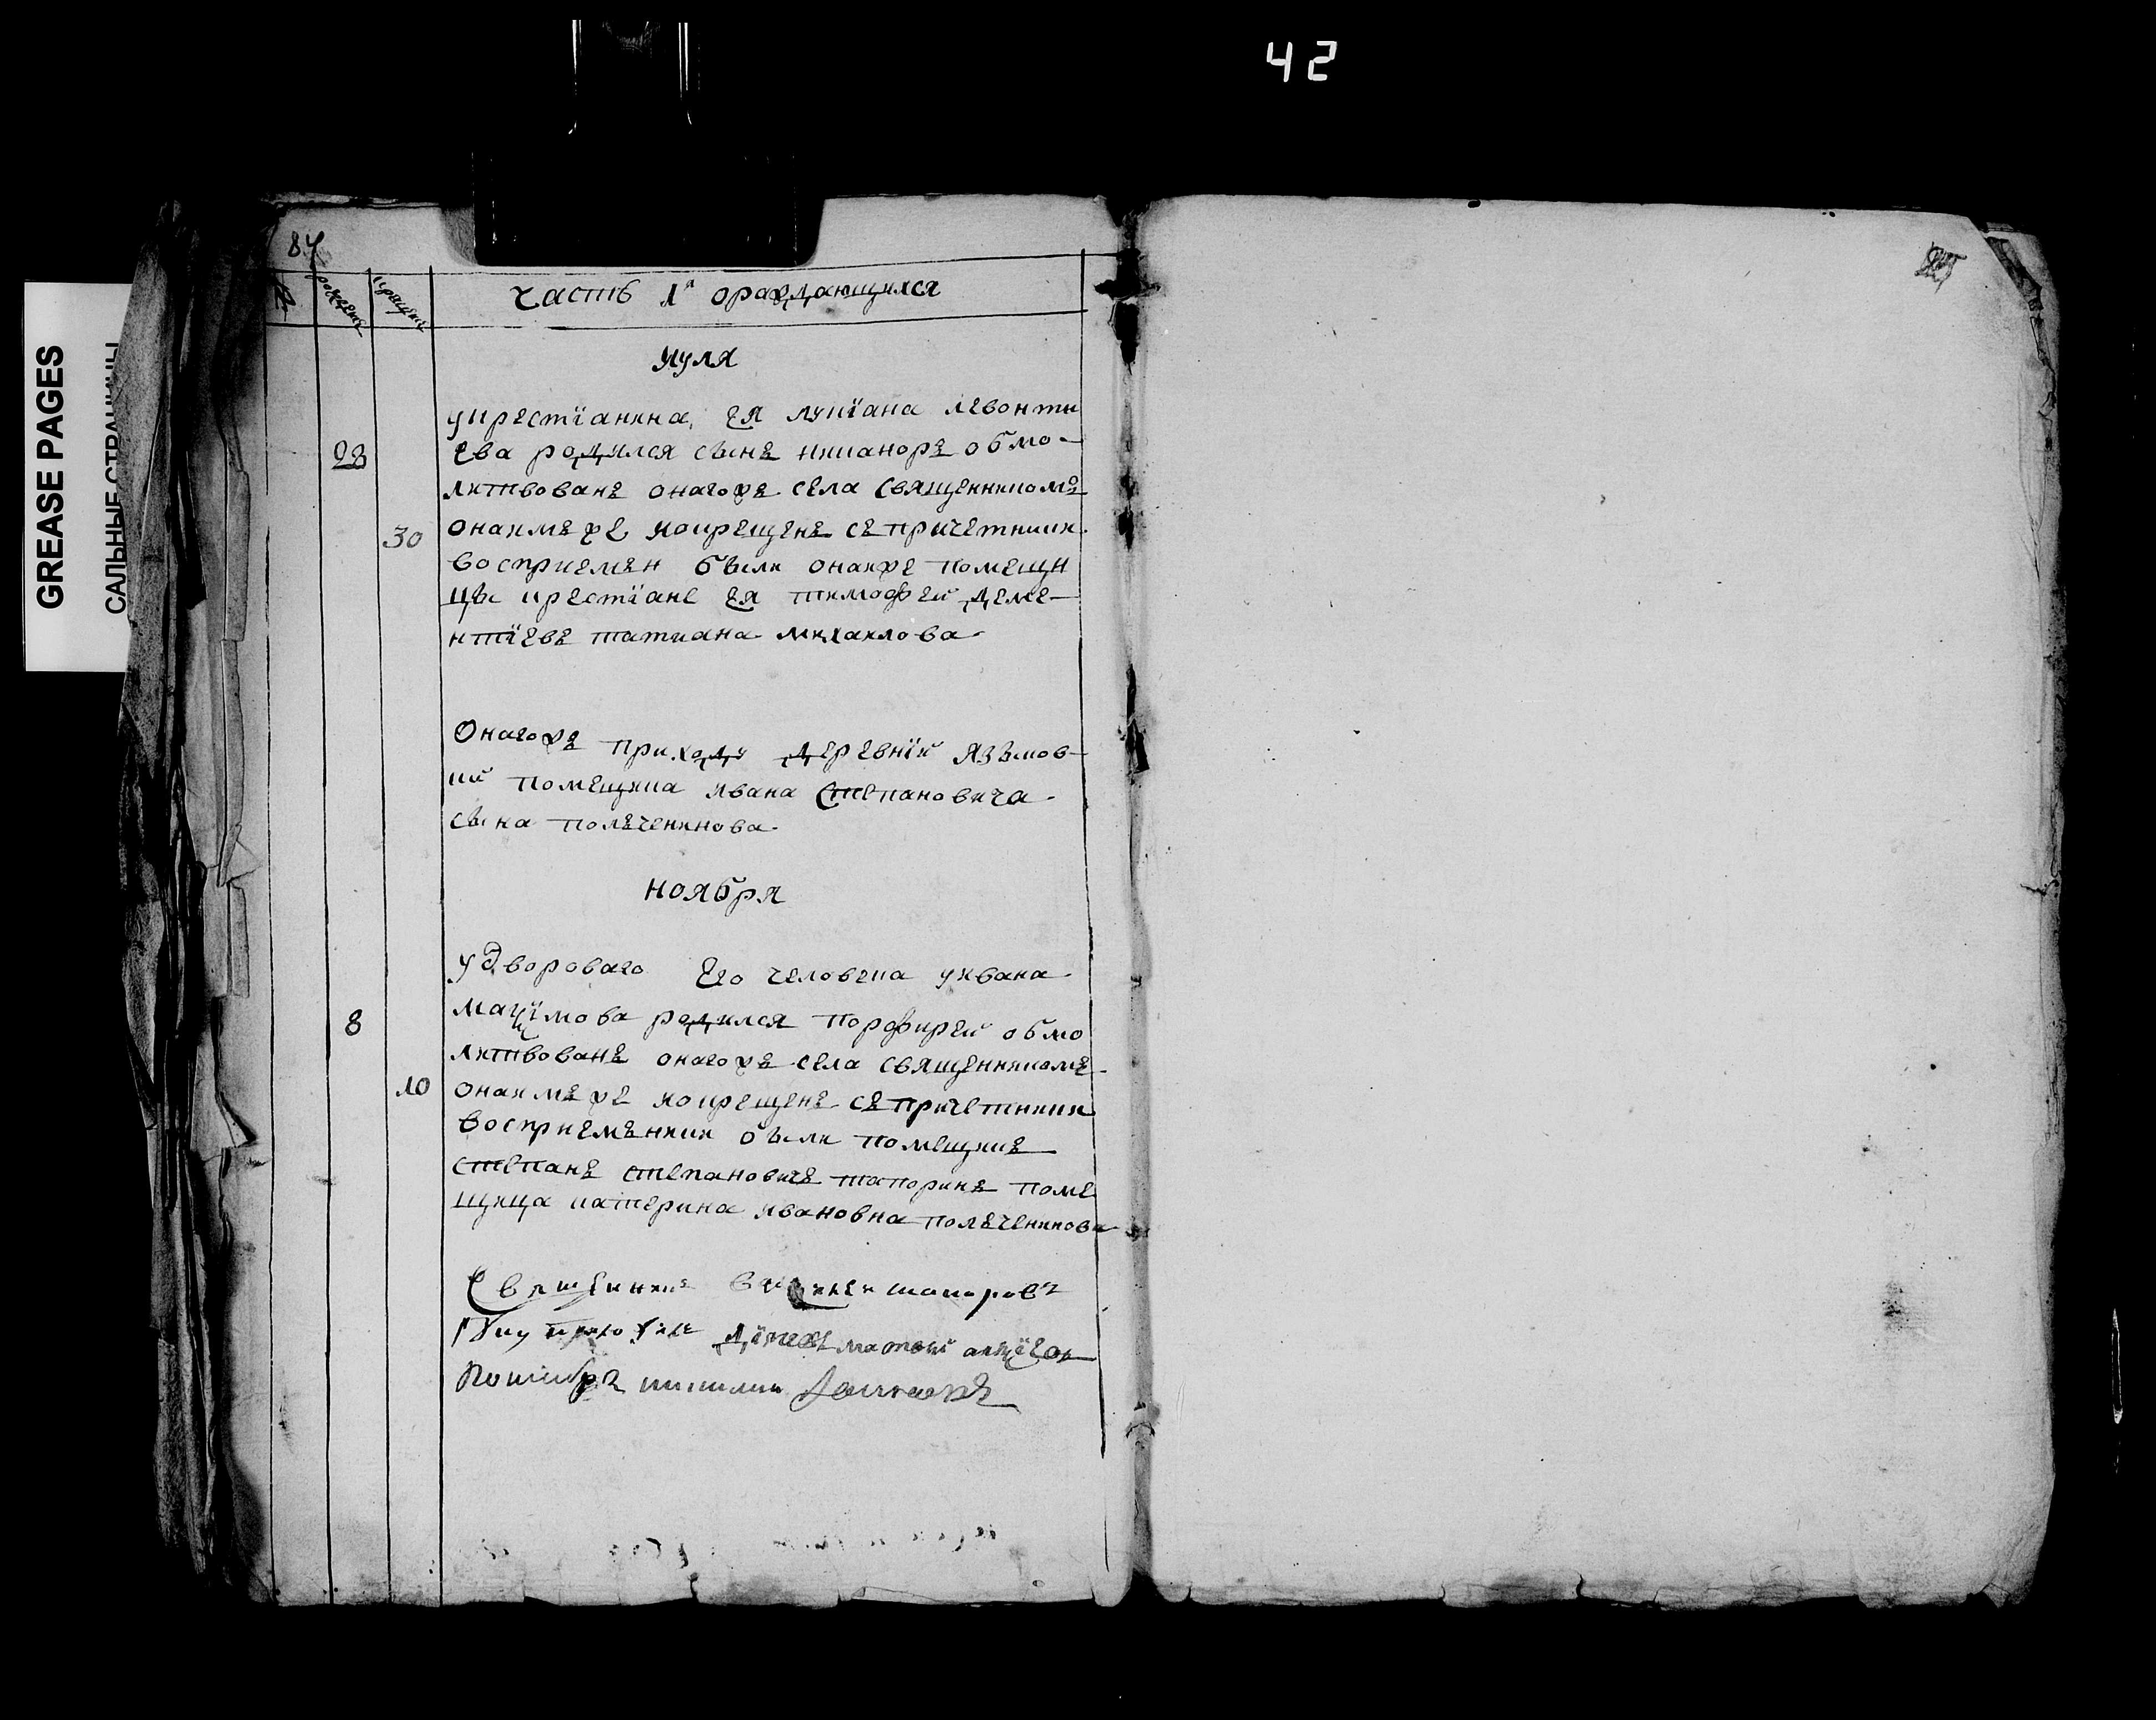 42
GREASE PAGES
САЛЬНЫЕ СТРАНИЦЫ
84
№ рождение крещение
Часть 1я ораждающихся
июля
укрестїанина ея лукїана левонти
28 ева родился сынъ никаноръ обмо-
литвованъ онагожъ села священникомъ
30 онакимъ же икокрещенъ съ причетники
восприемън были онакже помещи
цы крестїане ея тимофей деме-
нтїевъ татиана михаилова
Онагожъ приходу деревнїи языков-
ки помещика ивана степановича
сына полъченинова
ноября
удворовago его человека уивана
8 мазїмова родился порфирей обмо
литвованъ онагожъ села священникомъ
10 онаимъ же икокрещенъ съ причетники
восприемъники были помещикъ
степанъ степановичъ топоринъ поме
щица катерина ивановна полъченинова
Священникъ
матвей